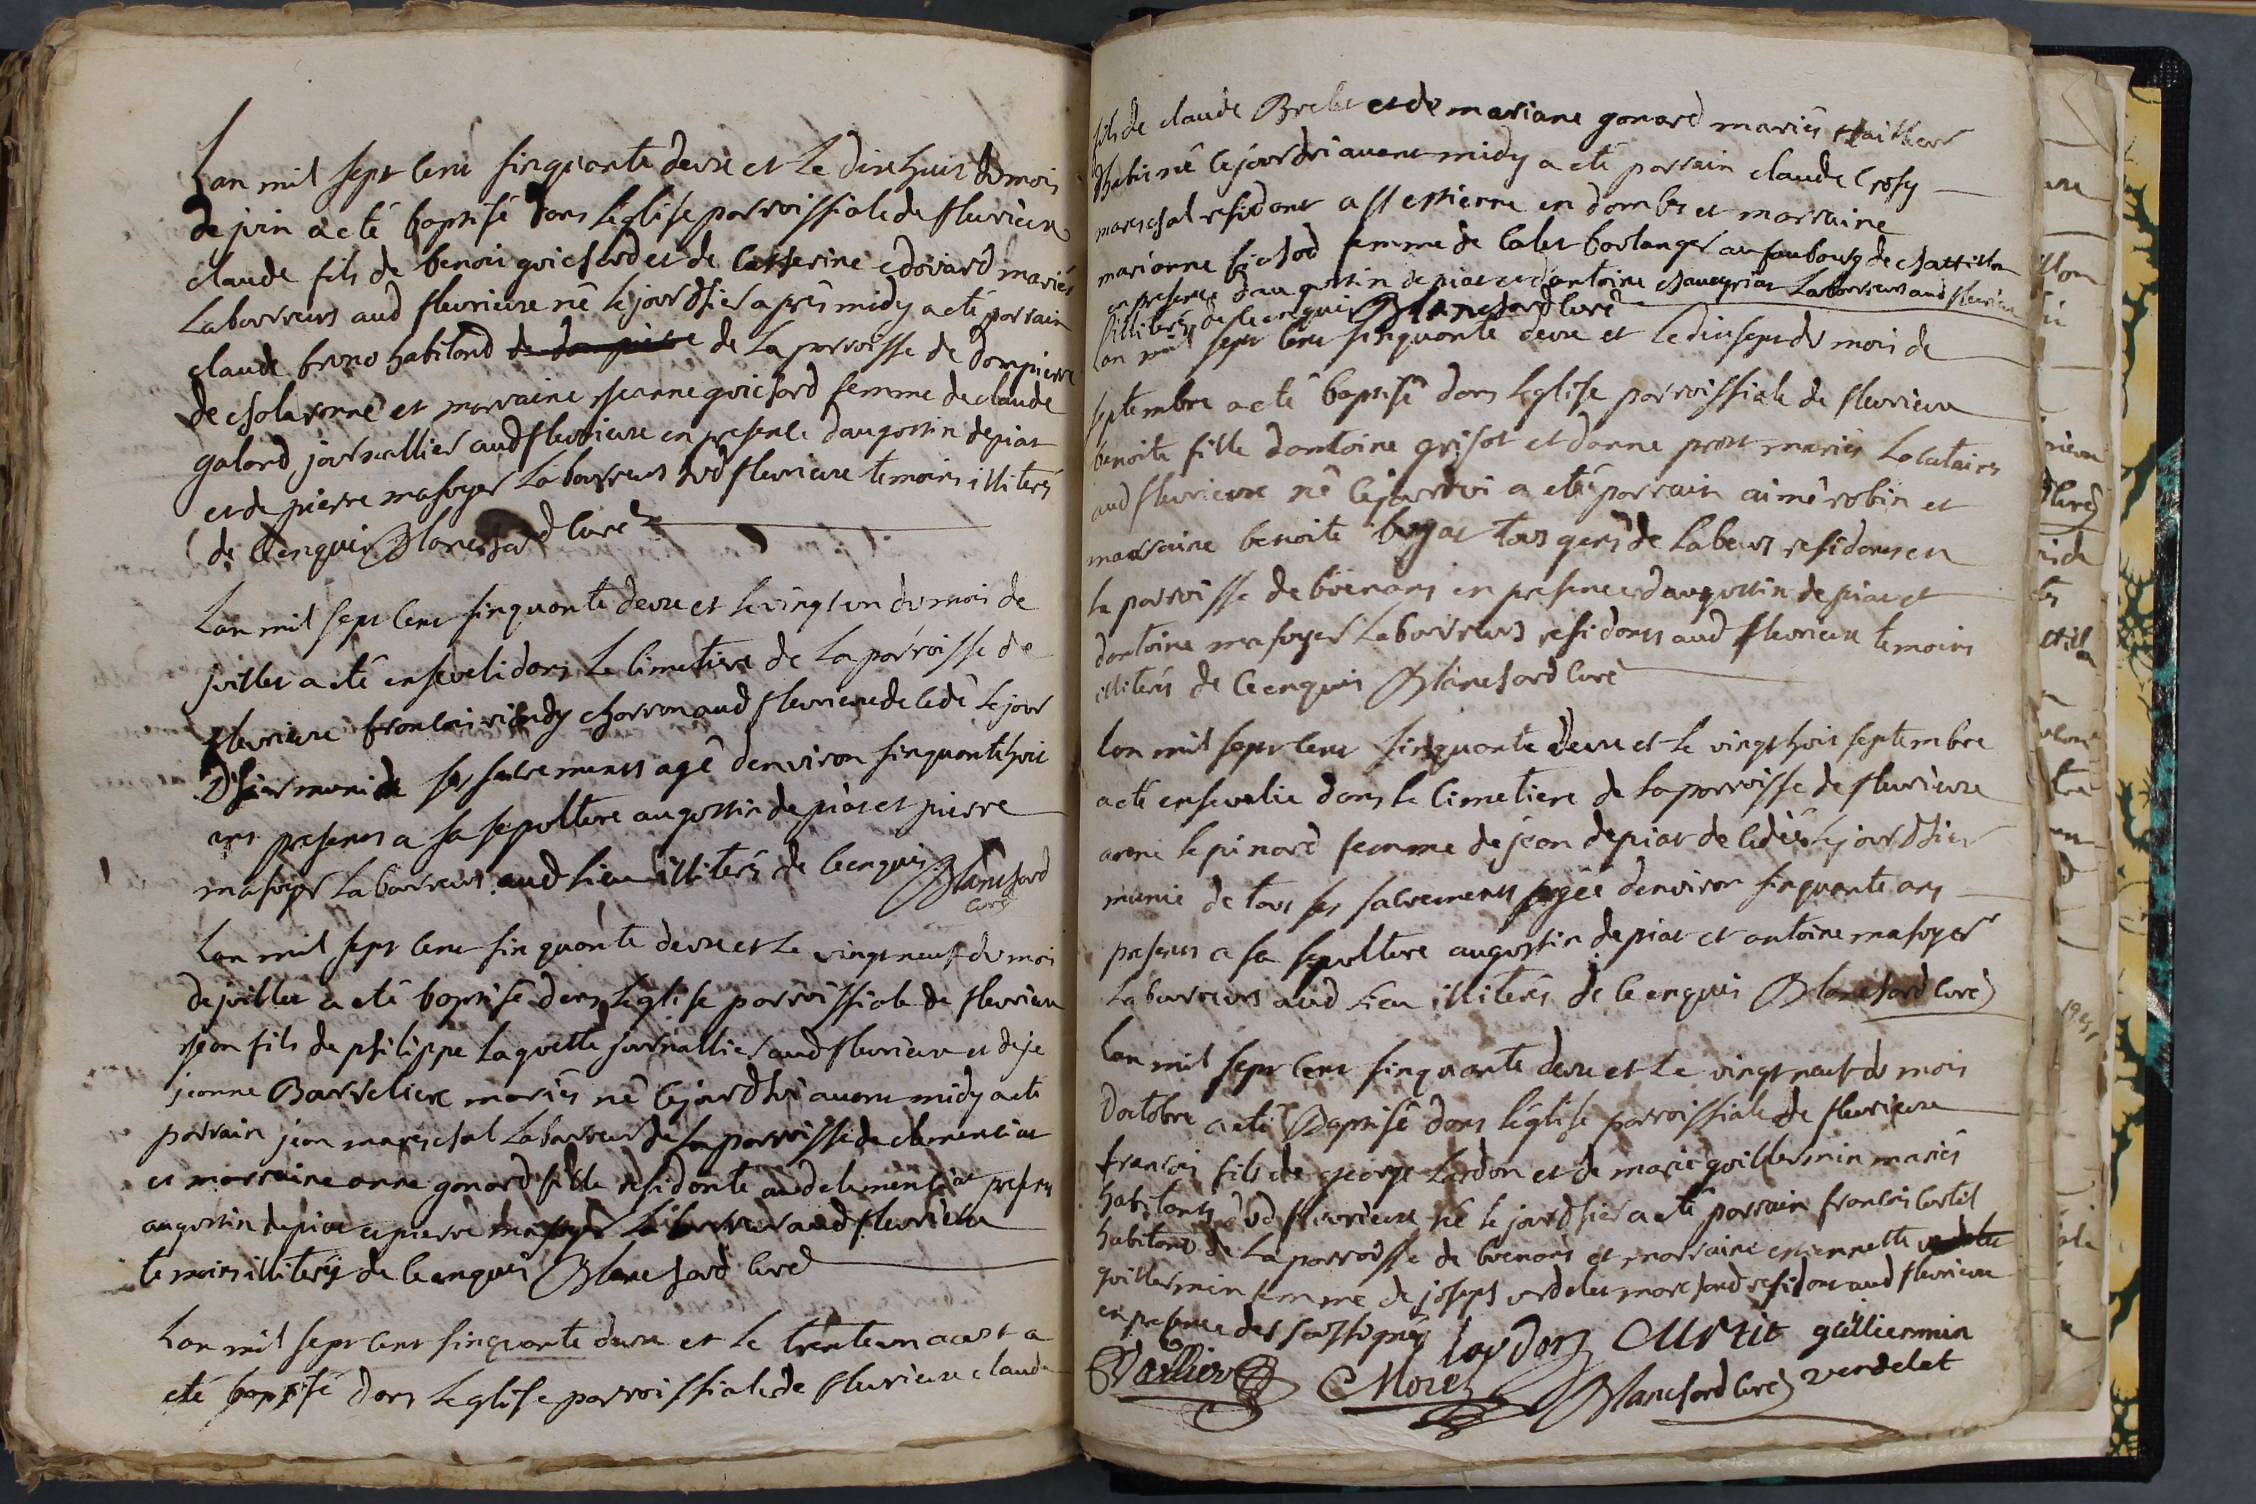 Lan mil sept cent sinquante deux et le dix huit du mois
de juin a eté baptisé dans leglise parroissiale de fleurieux
claude fils de benoit guichard et de catherine edouard mariés
laboureurs aud fleurieux né le jour dhier aprês midy a eté parrain
claude bruno habitand de dompierre de la parroisse de dompierre
de chalaronne et marraine jeanne guichard femme de claude
galand journallier aud fleurieux en presence daugustin depiat
et de pierre masoyer laboureurs aud fleurieux temoins illiterés
de ce enquis Blanchard curé
Lan mil sept cent sinquante deux et le vingt un du mois de
juillet a eté enseveli dans le cimetiere de la parroisse de
fleurieux francois charron aud fleurieux decedé le jour
dhier muni de ses sacrements agé denviron sinquante huit
ans presents a sa sepulture augustin depiat et pierre
masoyer laboureurs aud lieu illiterés de ce enquis Blanchard
curé
Lan mil sept cent sinquante deux et le vingt neuf du mois
de juillet a eté baptisé dans leglise parroissiale de fleurieux
jean fils de philippe laquette journallier aud fleurieux et de je
jeanne Barreliere mariés né cejourdhui avant midy a eté
parrain jean mareschal laboureur de la parroisse de clemenciat
et marraine anne gonard fille residante aud clemenciat presents
augustin depiat et pierre masoyer laboureur aud fleurieux
temoins illiterés de ce enquis Blanchard curé
Lan mil sept cent sinquante deux et le trente un aoust a
eté baptisé dans leglise parroissiale de fleurieux claude
fils de claude Brelet et de mariane gonard mariés
né cejourdhui avant midy a eté parrain claude crosy
mareschal residant a st estienne en dombes et marraine
marianne femme de calet boulanger au faubourg de chattillon
en presence daugustin depiat et dantoine laboureurs aud fleurieux
illiterés de ce enquis Blanchard curé
Lan mil sept cent sinquante deux et le dix sept du mois de
septembre a eté baptisé dans leglise parroissiale de fleurieux
benoite fille dantoine grisot et danne prost mariés locataires
aud fleurieux né cejourdui a eté parrain aimé robin et
marraine benoite bugat tous gens de labeur residants en
la parroisse de buenans en presence daugustin depiat et
dantoine masoyer laboureurs residants aud fleurieux temoins
illiterés de ce enquis Blanchard curé
Lan mil sept cent sinquante deux et le vingt huit septembre
a eté ensevelie dans le cimetiere de la parroisse de fleurieux
anne lepinard femme de jean depiat decedée le jour dhier
munie de tous ses sacrements agée denviron sinquante ans
presents a sa sepulture augustin depiat et antoine masoyer
laboureurs aud lieu illiterés de ce enquis Blanchard curé
Lan mil sept cent sinquante deux et le vingt neuf du mois
doctobre a eté Baptisé dans léglise parroissiale de fleurieux
francois fils de george lardon et de marie guillermin mariés
habitants aud fleurieux né le jour dhier a eté parrain francois curtil
habitand de la parroisse de buenans et marraine estiennette verdelet
guillermin femme de joseph verdelet marchand residant aud fleurieux
en presence des soussignés lardon Curtit guilliermin
Vallier Morel Blanchard curé verdelet